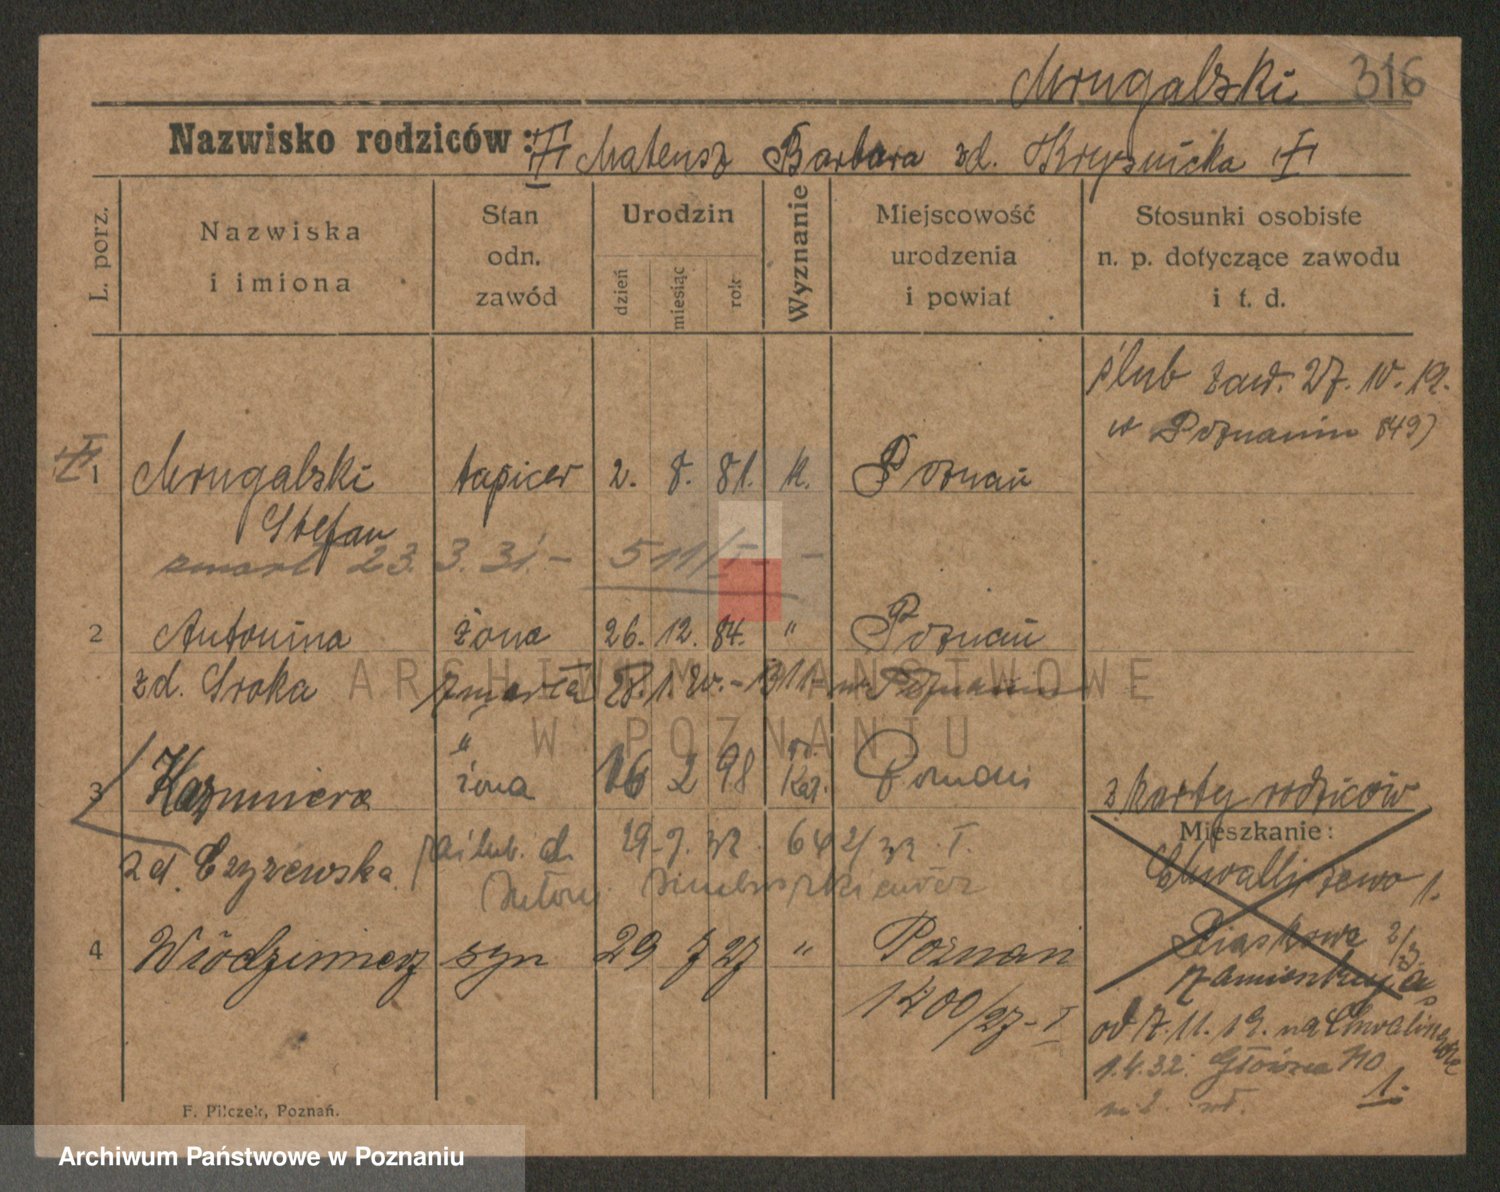 Mrugalski 316
Nazwisko rodziców: Mateusz Barbara zd. Krysnicka
L. porz.
Nazwiska
i imiona
Stan
odn.
zawód
Urodzin
dzień
miesiąc
rok
Wyznanie
Miejscowość
urodzenia
i powiat
Stosunki osobiste
n. p. dotyczące zawodu
i t. d.
ślub zaw. 27. 10. 19.
w Poznaniu 849)
1 Mrugalski tapicer 2. 8. 81. k. Poznań
Stefan
zmarł 23. 3. 31. – 511/I – –
2 Antonina żona 26. 12. 84. " Poznań
zd. Sroka zmarła 28. 1. w Poznaniu
"
3 Kazimiera żona 16 2 98 rz. Kat. Poznań
z karty rodziców
zd. Czyżewska
zaślub. d. 29. 7. 32. 642/32. I.
Mieszkanie:
Chwaliszewo 1.
4 Włodzimierz syn 29 7 27 " Poznań
1400/27 – I
Piaskowa 2/3
zamieszkują
od 7. 11. 19. na Chwaliszewie
1.
1.4.32. Główna 70
F. Pilczek, Poznań.
ARCHIWUM PAŃSTWOWE
W POZNANIU
Archiwum Państwowe w Poznaniu